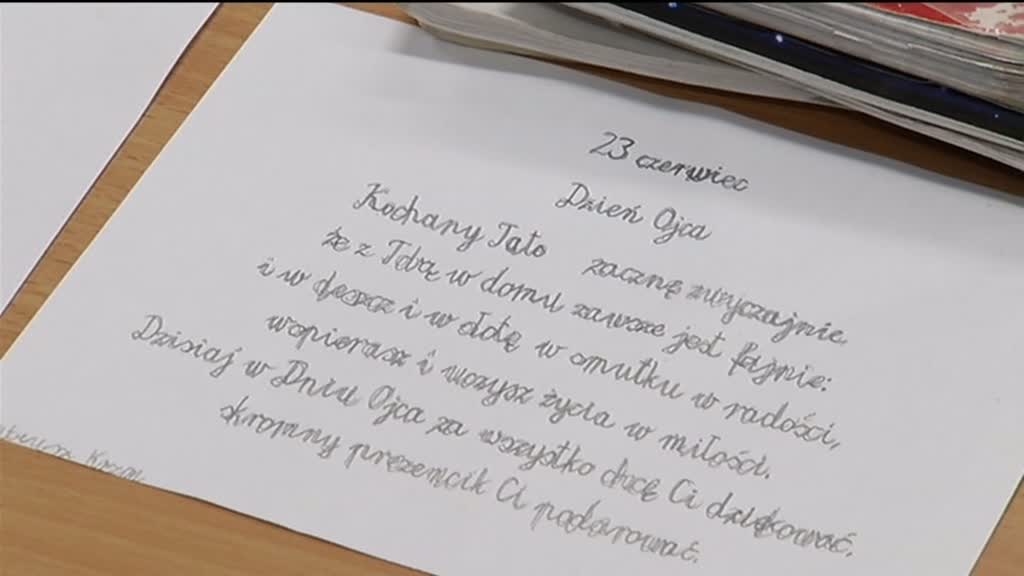 23 czerwiec
Dzień Ojca
Kochany Tato zacznę zwyczajnie,
że z Tobą w domu zawsze jest fajnie:
i w deszcz i w słotę w smutku w radości,
wspierasz i uczysz życia w miłości.
Dzisiaj w Dniu Ojca za wszystko chcę Ci dziękować,
skromny prezencik Ci podarować.